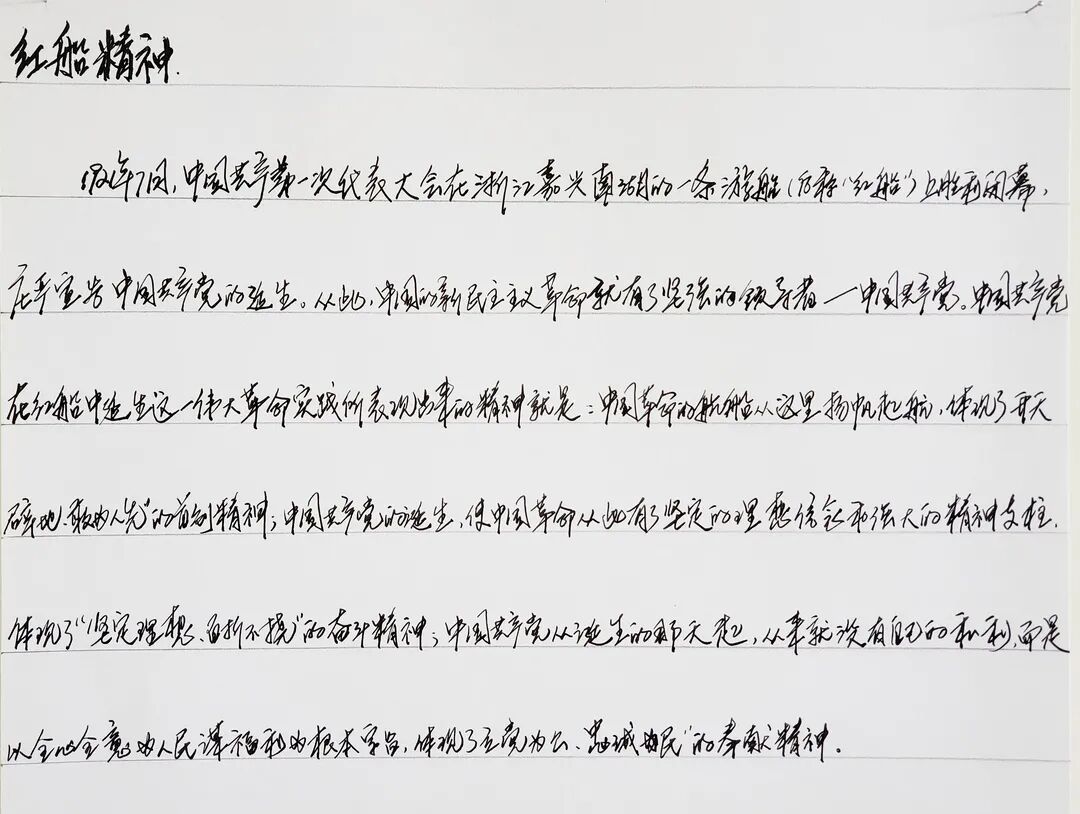 红船精神.
1921年7月,中国共产第一次代表大会在浙江嘉兴南湖的一条游船(后称“红船”)上胜利闭幕,
庄严宣告中国共产党的诞生。从此,中国的新民主主义革命就有了坚强的领导者—中国共产党。中国共产党
在红船中诞生这一伟大革命实践所表现出来的精神就是:中国革命的航船从这里扬帆起航,体现了开天
辟地、敢为人先”的首创精神;中国共产党的诞生,使中国革命从此有了坚定的理想信念和强大的精神支柱.
体现了“坚定理想、百折不挠”的奋斗精神;中国共产党从诞生的那天起,从来就没有自己的私利,而是
以全心全意为人民谋福利为根本宗旨,体现了立党为公、忠诚为民”的奉献精神.